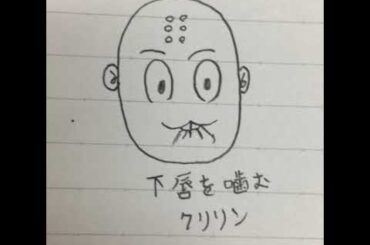 下唇を噛む
クリリン